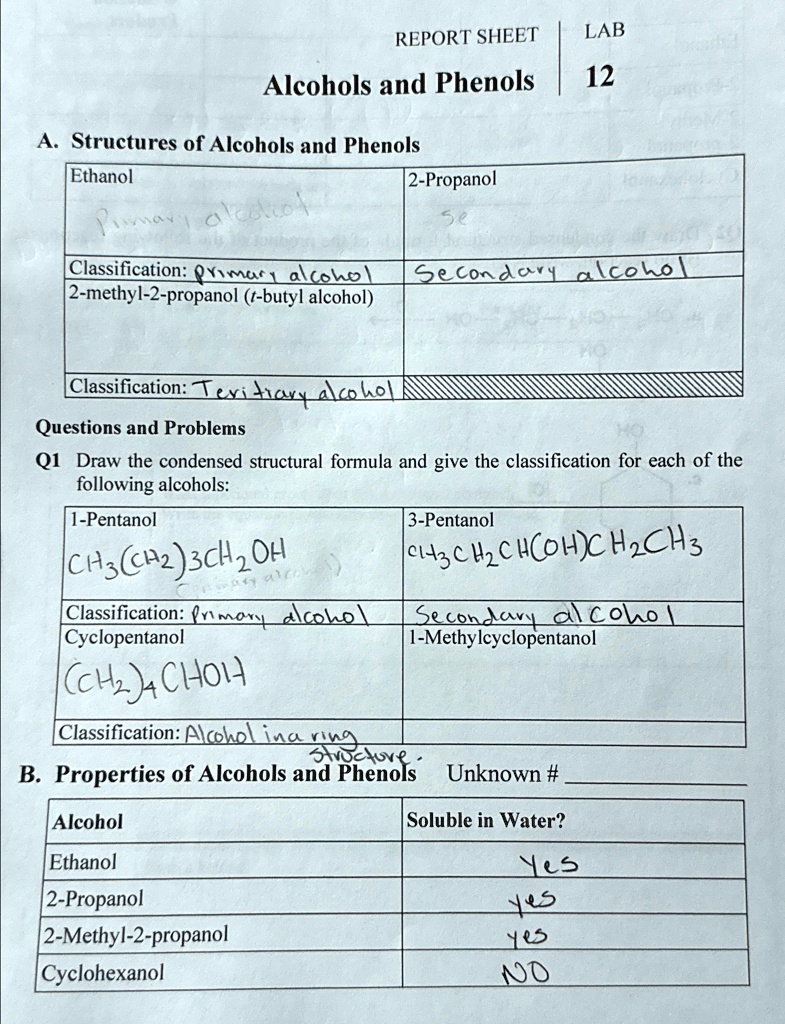 REPORT SHEET LAB
Alcohols and Phenols 12
A. Structures of Alcohols and Phenols
Ethanol 2-Propanol
Primary alcohol se
Classification: primary alcohol Secondary alcohol
2-methyl-2-propanol (t-butyl alcohol)
Classification: Teritrary alcohol
Questions and Problems
Q1 Draw the condensed structural formula and give the classification for each of the
following alcohols:
1-Pentanol 3-Pentanol
CH3(CH2)3CH2OH CH3CH2CH(OH)CH2CH3
(primary alcohol)
Classification: Primary alcohol Secondary alcohol
Cyclopentanol 1-Methylcyclopentanol
(CH2)4CHOH
Classification: Alcohol in a ring
structure.
B. Properties of Alcohols and Phenols Unknown #
Alcohol Soluble in Water?
Ethanol Yes
2-Propanol yes
2-Methyl-2-propanol yes
Cyclohexanol NO